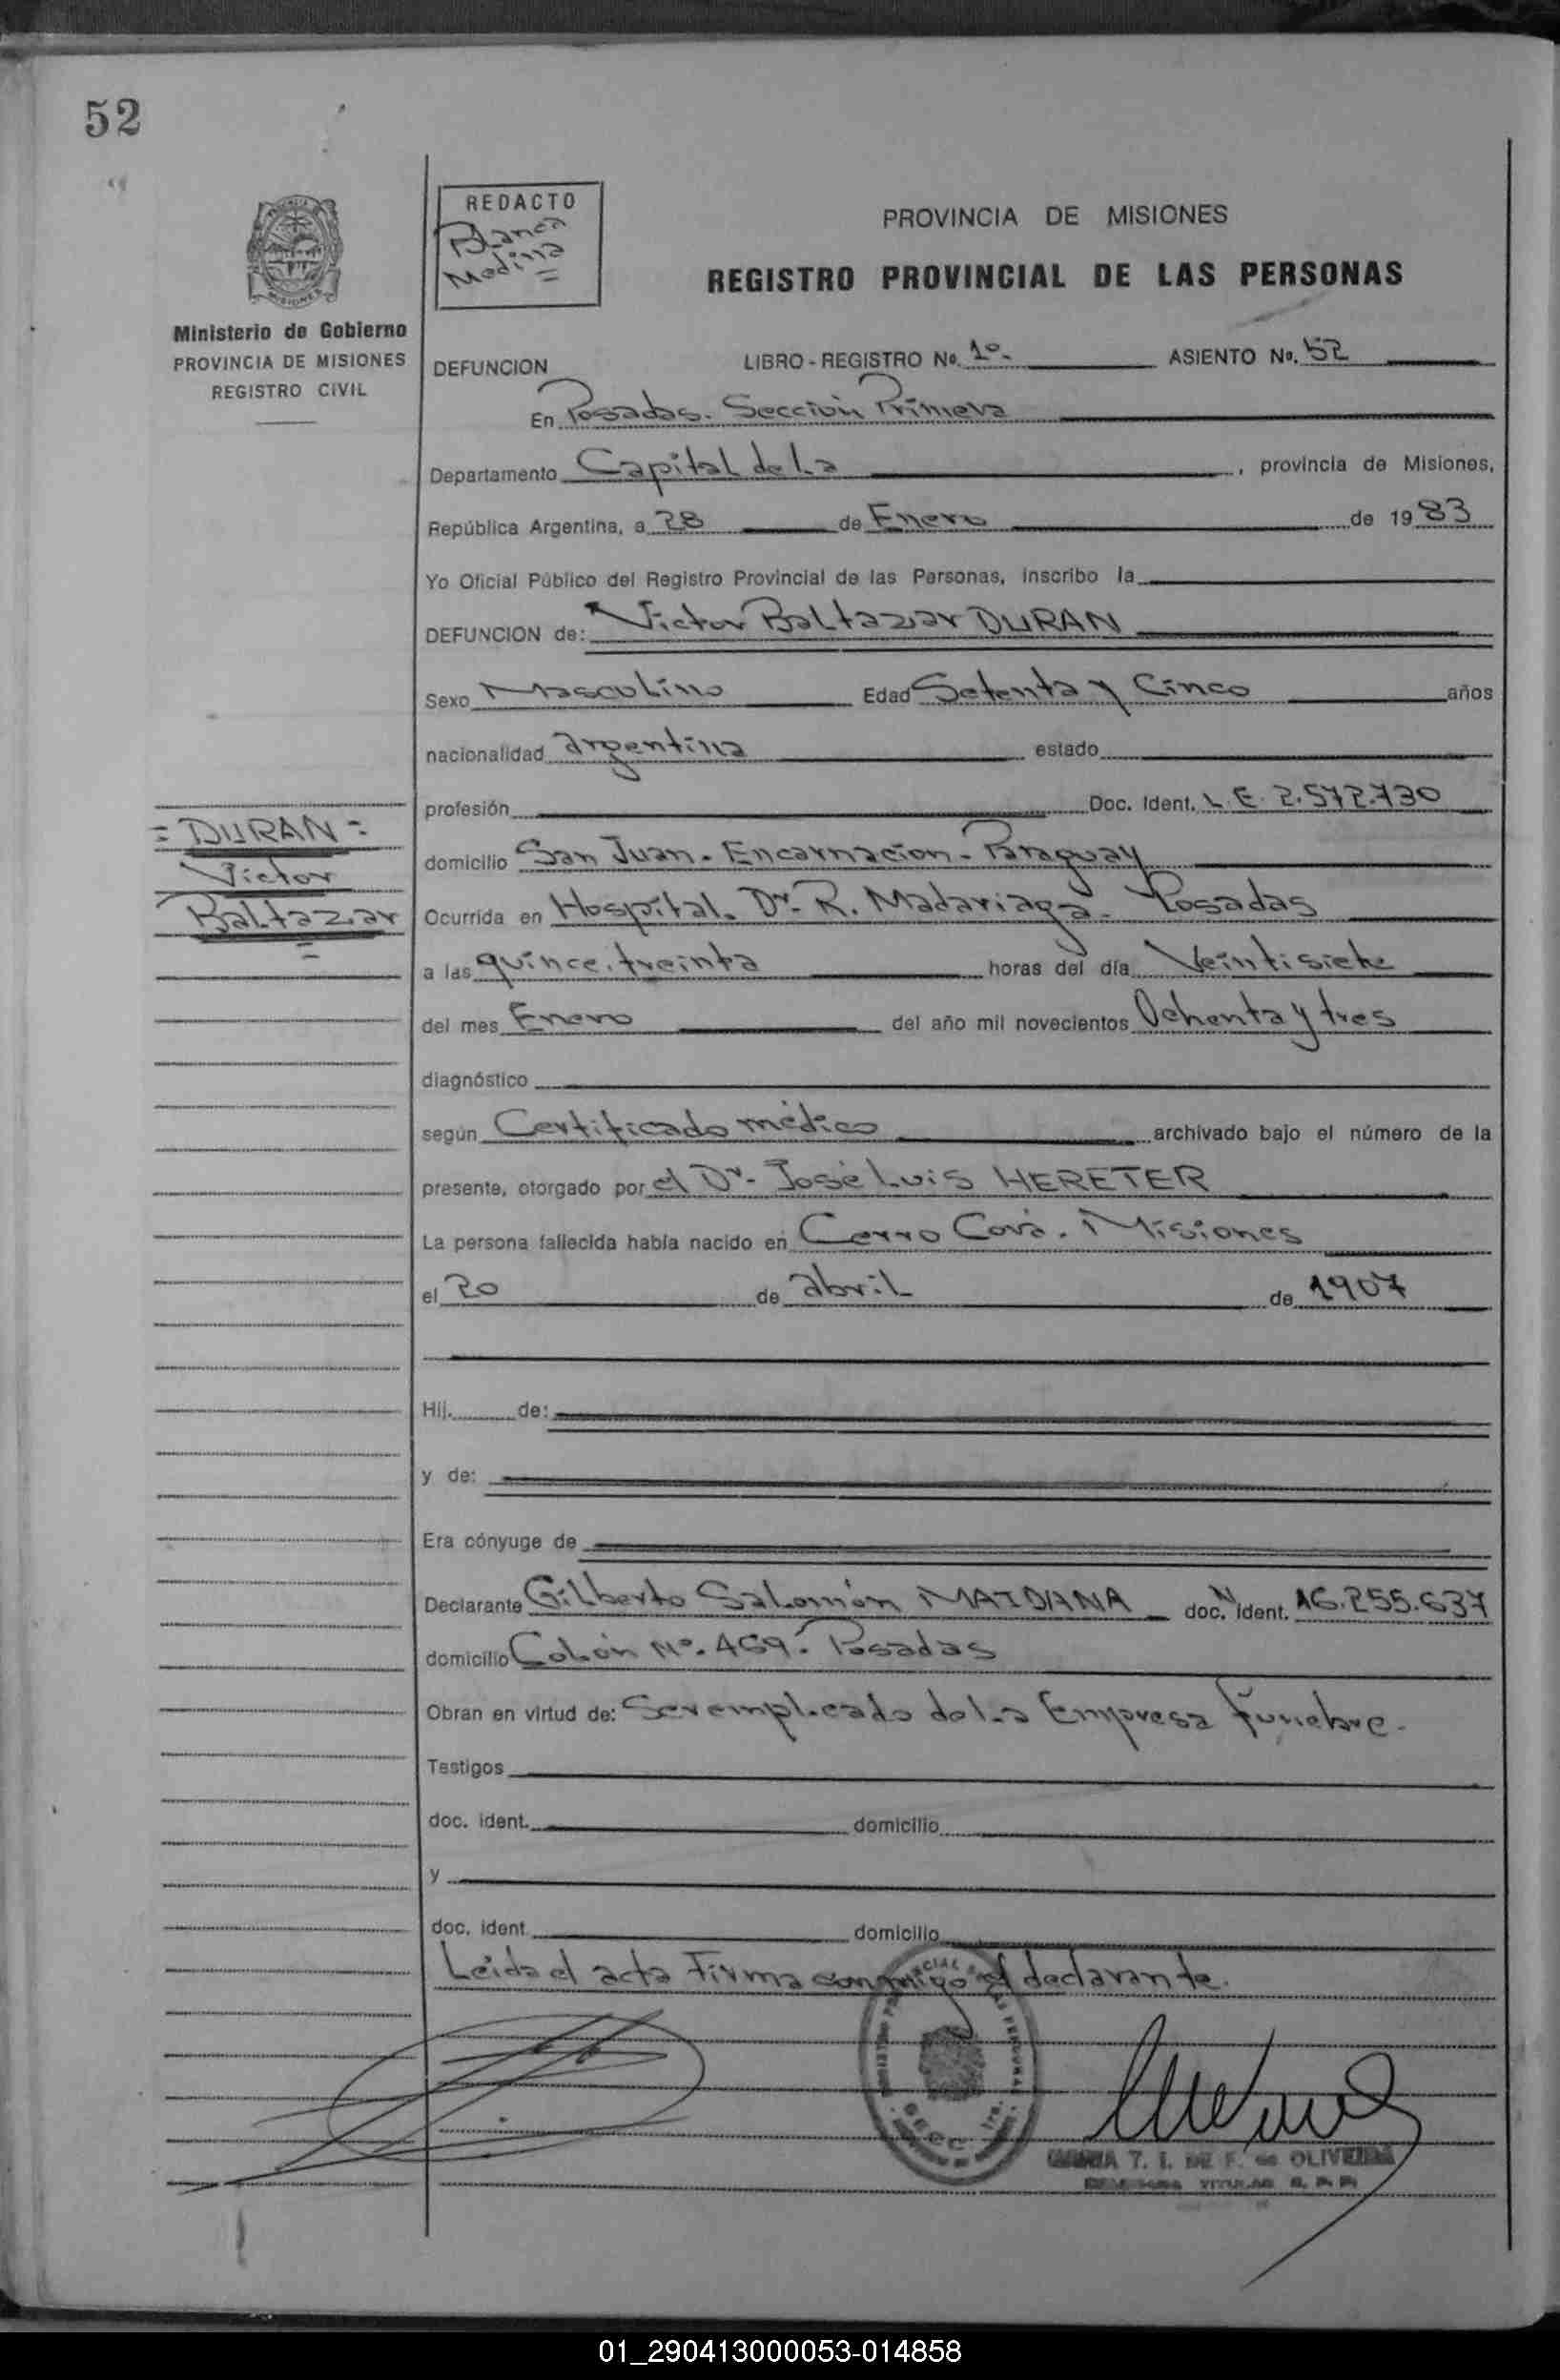 52
REDACTO
Blanca
Medina
PROVINCIA DE MISIONES
REGISTRO PROVINCIAL DE LAS PERSONAS
Ministerio de Gobierno
PROVINCIA DE MISIONES
REGISTRO CIVIL
DEFUNCION LIBRO - REGISTRO No. 1º. ASIENTO No. 52
En Posadas. Sección Primera
Departamento Capital de La, provincia de Misiones,
República Argentina, a 28 de Enero de 1983
Yo Oficial Público del Registro Provincial de las Personas, inscribo la
DEFUNCION de: Victor Baltazar DURAN
Sexo Masculino Edad Setenta y Cinco años
nacionalidad argentina estado
profesión Doc. Ident. L.E. 2.572.730
= DURAN =
Victor
Baltazar
=
domicilio San Juan. Encarnacion - Paraguay
Ocurrida en Hospital. Dr. R. Madariaga. Posadas
a las quince, treinta horas del día Veintisiete
del mes Enero del año mil novecientos Ochenta y tres
diagnóstico
según Certificado médico archivado bajo el número de la
presente, otorgado por el Dr. José Luis HERETER
La persona fallecida había nacido en Cerro Corá. Misiones
el 20 de abril de 1907
Hij. de:
y de:
Era cónyuge de
Declarante Gilberto Salomón MAIDANA doc. N ident. 16.255.637
domicilio Colón Nº. 459. Posadas
Obran en virtud de: Ser empleado de La Empresa Funebre.
Testigos
doc. ident. domicilio
y
doc. ident. domicilio
Leida el acta Firma conmigo el declarante.
T. I. DE F. de OLIVEIRA
TITULAR R. P. P.
01_290413000053-014858